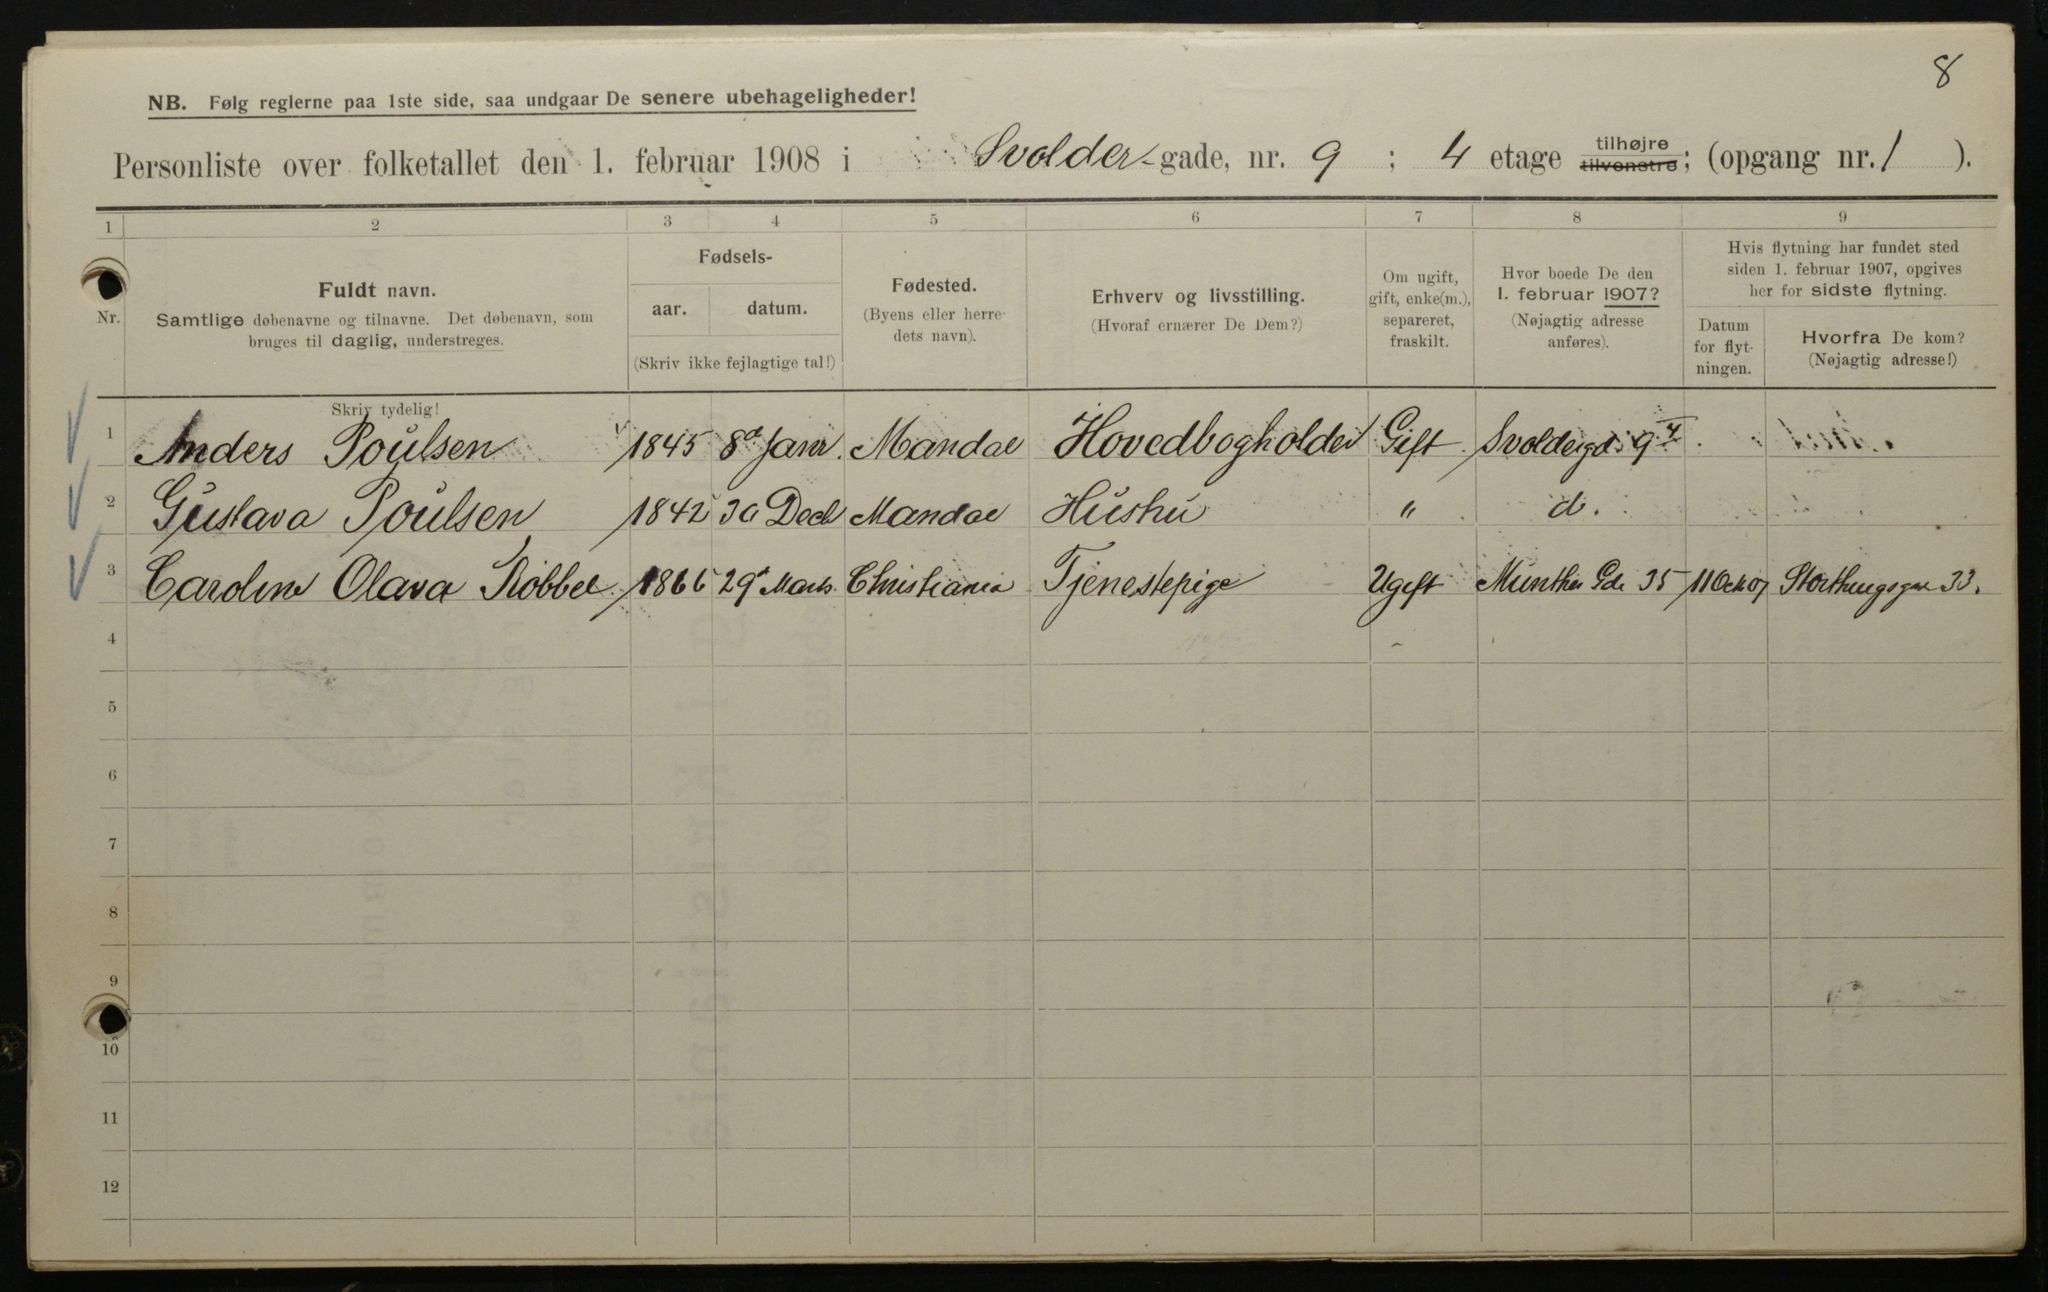 8
NB. Følg reglerne paa 1ste side, saa undgaar De senere ubehageligheder!
Personliste over folketallet den 1. februar 1908 i Svolder-gade, nr. 9 ; 4 etage tilhøjre tilvenstre; (opgang nr. 1 ).
1 2 3 4 5 6 7 8 9
Nr.
Fuldt navn.
Samtlige døbenavne og tilnavne. Det døbenavn, som
bruges til daglig, understreges.
Skriv tydelig!
Fødsels-
aar. datum.
(Skriv ikke fejlagtige tal!)
Fødested.
(Byens eller herre-
dets navn).
Erhverv og livsstilling.
(Hvoraf ernærer De Dem?)
Om ugift,
gift, enke(m.),
separeret,
fraskilt.
Hvor boede De den
1. februar 1907?
(Nøjagtig adresse
anføres).
Hvis flytning har fundet sted
siden 1. februar 1907, opgives
her for sidste flytning.
Datum
for flyt-
ningen.
Hvorfra De kom?
(Nøjagtig adresse!)
1 Anders Poulsen 1845 8d Janr. Mandal Hovedbogholder Gift Svoldergd. 9 4
2 Gustava Poulsen 1842 30 Decb Mandal Hustru " d.
3 Olava 1866 29 Marts Christiania Tjenestepige Ugift Munthes Gde 35 11 Oct 07 Storthingsgaden 33.
4
5
6
7
8
9
10
11
12